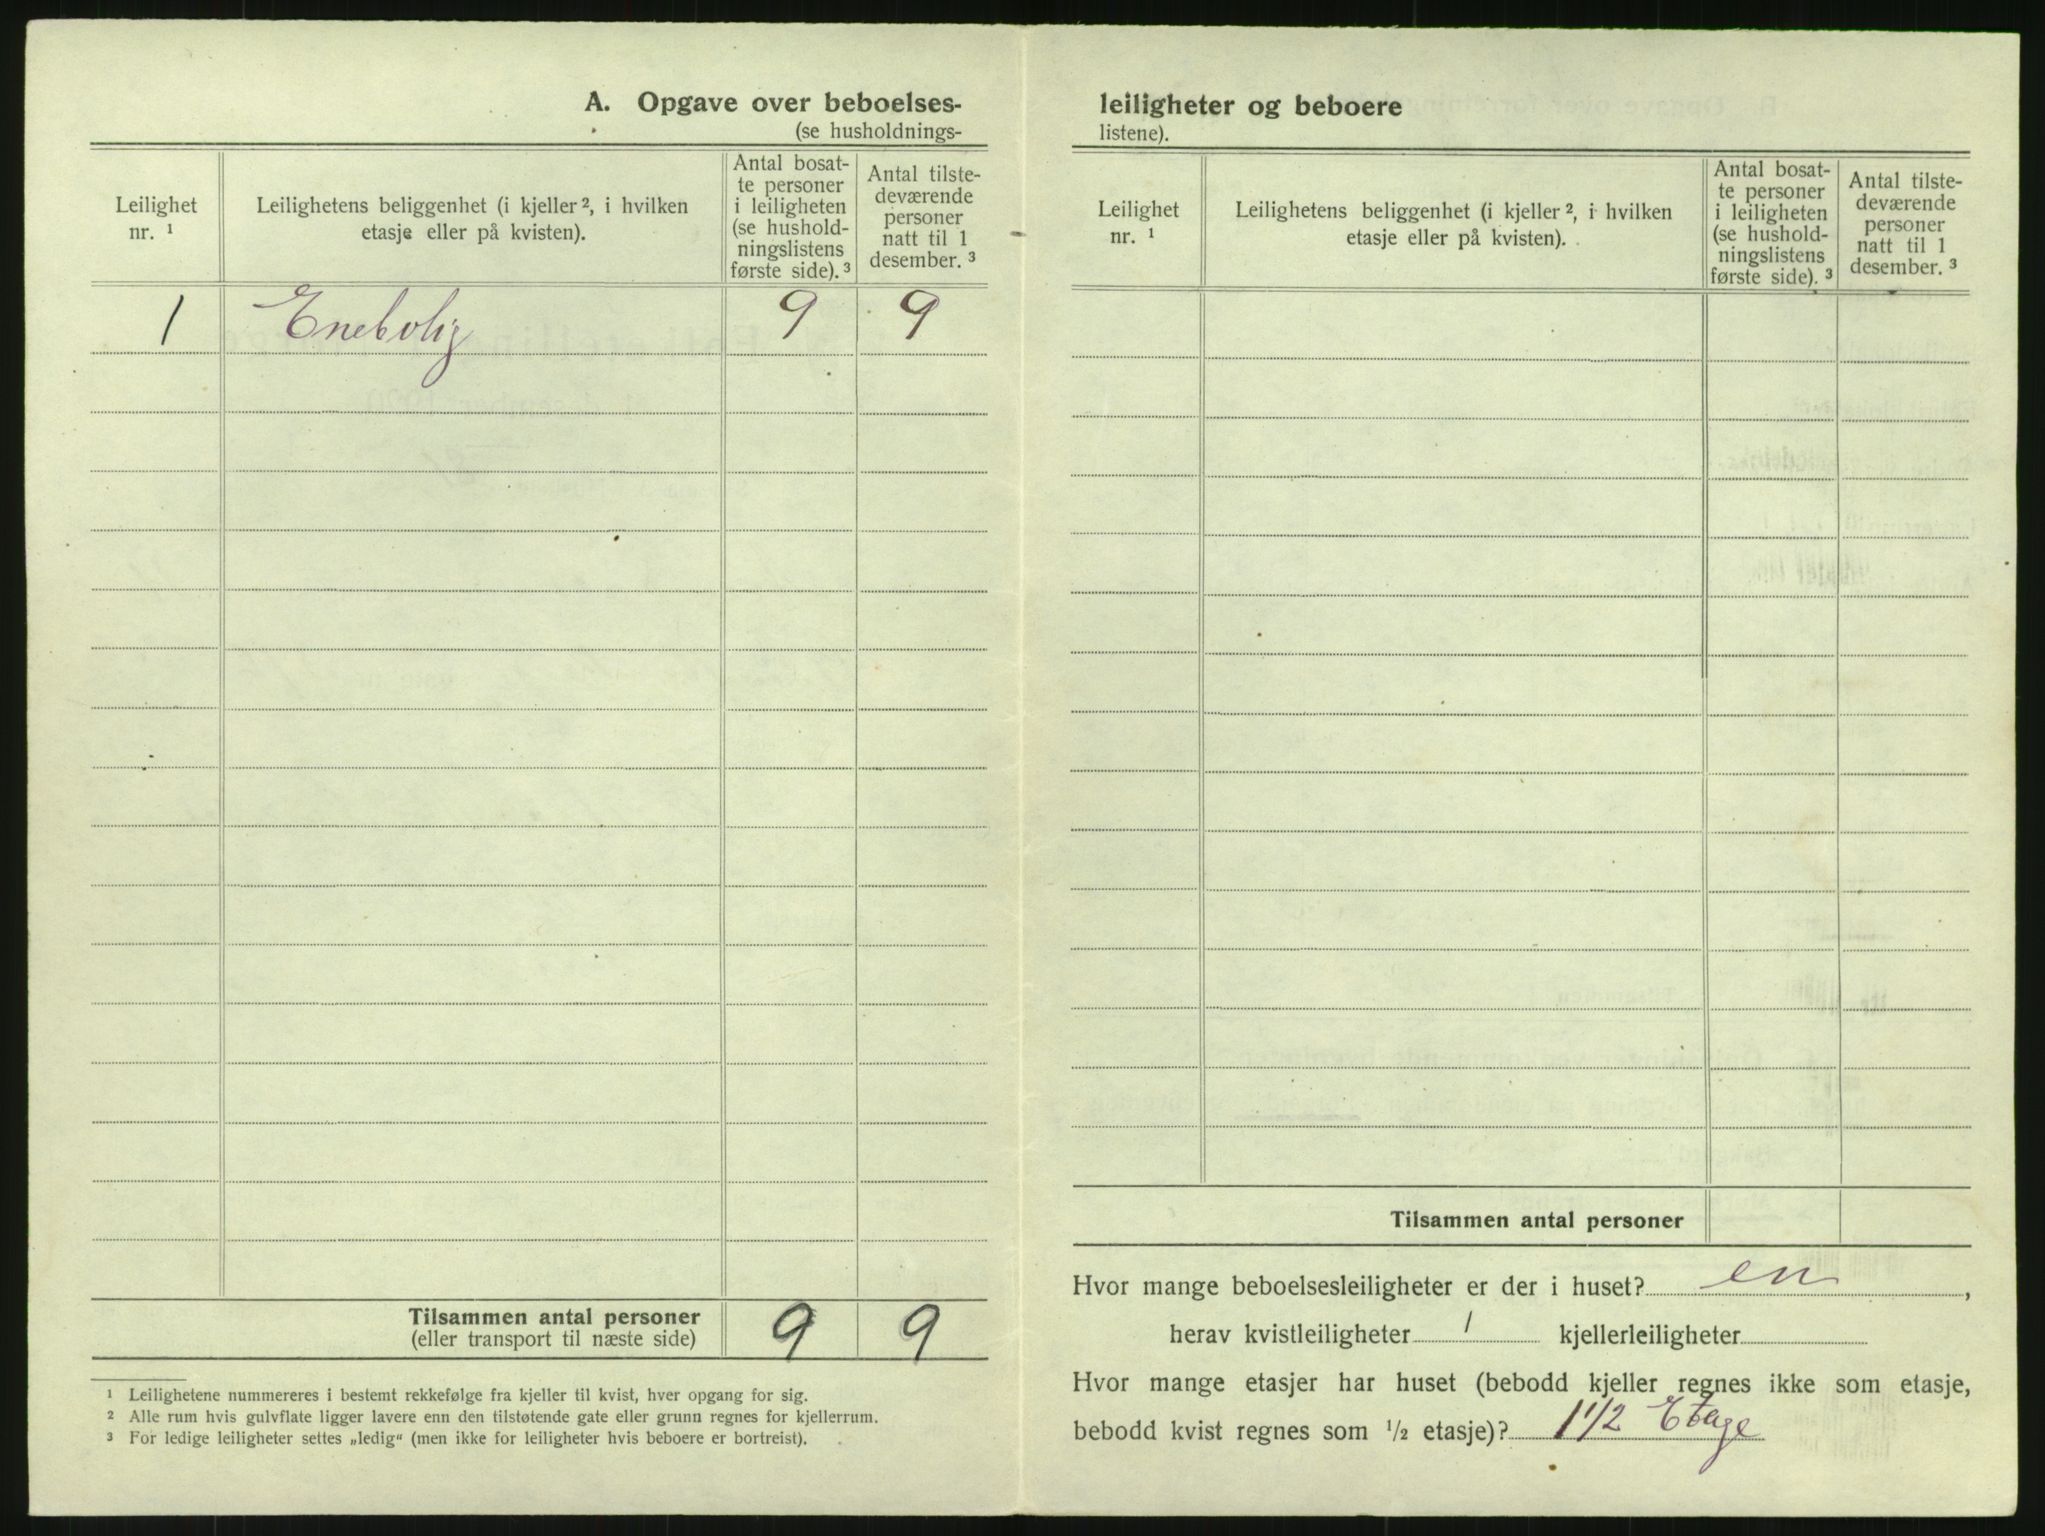 A. Opgave over beboelses-
(se husholdnings-
Leilighet
nr. ¹
Leilighetens beliggenhet (i kjeller ², i hvilken
etasje eller på kvisten).
Antal bosat-
te personer
i leiligheten
(se hushold-
ningslistens
første side). ³
Antal tilste-
deværende
personer
natt til 1
desember. ³
1 Enebolig 9 9
Tilsammen antal personer 9 9
(eller transport til næste side)
¹ Leilighetene nummereres i bestemt rekkefølge fra kjeller til kvist, hver opgang for sig.
² Alle rum hvis gulvflate ligger lavere enn den tilstøtende gate eller grunn regnes for kjellerrum.
³ For ledige leiligheter settes „ledig“ (men ikke for leiligheter hvis beboere er bortreist).
leiligheter og beboere
listene).
Leilighet
nr. ¹
Leilighetens beliggenhet (i kjeller ², i hvilken
etasje eller på kvisten).
Antal bosat-
te personer
i leiligheten
(se hushold-
ningslistens
første side). ³
Antal tilste-
deværende
personer
natt til 1
desember. ³
Tilsammen antal personer
Hvor mange beboelsesleiligheter er der i huset? en,
herav kvistleiligheter 1 kjellerleiligheter
Hvor mange etasjer har huset (bebodd kjeller regnes ikke som etasje,
bebodd kvist regnes som ½ etasje)? 1 1/2 Etage